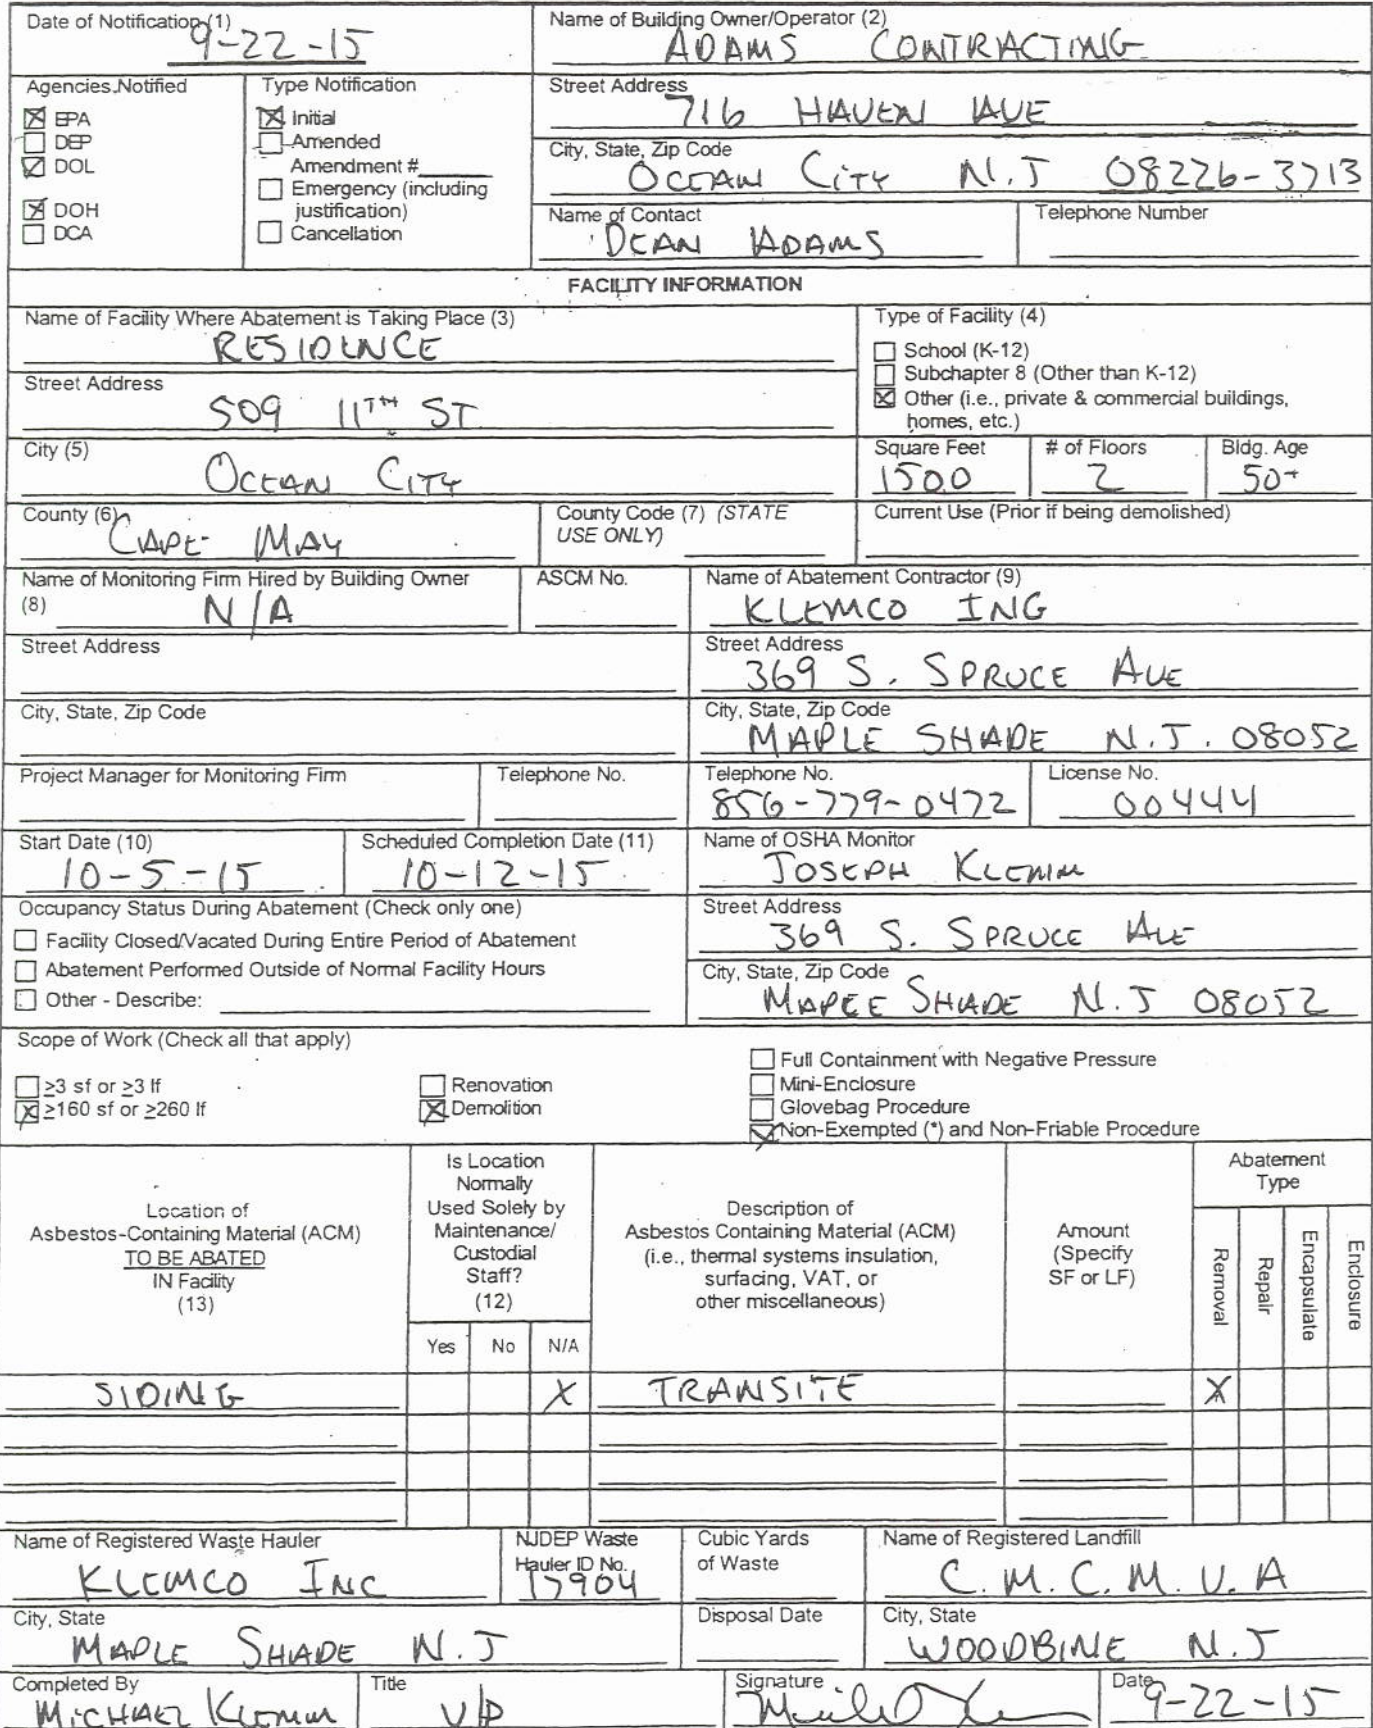 Date of Notification (1)
9-22-15
Name of Building Owner/Operator (2)
ADAMS CONTRACTING
Agencies Notified
EPA
DEP
DOL
DOH
DCA
Type Notification
Initial
Amended
Amendment #
Emergency (including
justification)
Cancellation
Street Address
716 HAVEN AVE
City, State, Zip Code
OCEAN CITY N.J 08226-3713
Name of Contact
DEAN ADAMS
Telephone Number
FACILITY INFORMATION
Name of Facility Where Abatement is Taking Place (3)
RESIDENCE
Street Address
509 11TH ST
City (5)
OCEAN CITY
Type of Facility (4)
School (K-12)
Subchapter 8 (Other than K-12)
Other (i.e., private & commercial buildings,
homes, etc.)
Square Feet
1500
# of Floors
2
Bldg. Age
50+
County (6)
CAPE MAY
County Code (7) (STATE
USE ONLY)
Current Use (Prior if being demolished)
Name of Monitoring Firm Hired by Building Owner
(8) N/A
ASCM No.
Name of Abatement Contractor (9)
KLEMCO ING
Street Address
Street Address
369 S. SPRUCE AVE
City, State, Zip Code
City, State, Zip Code
MAPLE SHADE N.J. 08052
Project Manager for Monitoring Firm
Telephone No.
Telephone No.
856-779-0472
License No.
00444
Start Date (10)
10-5-15
Scheduled Completion Date (11)
10-12-15
Name of OSHA Monitor
JOSEPH KLEMM
Occupancy Status During Abatement (Check only one)
Facility Closed/Vacated During Entire Period of Abatement
Abatement Performed Outside of Normal Facility Hours
Other - Describe:
Street Address
369 S. SPRUCE AVE
City, State, Zip Code
MAPLE SHADE N.J 08052
Scope of Work (Check all that apply)
≥3 sf or ≥3 lf
≥160 sf or ≥260 lf
Renovation
Demolition
Full Containment with Negative Pressure
Mini-Enclosure
Glovebag Procedure
Non-Exempted (*) and Non-Friable Procedure
Location of
Asbestos-Containing Material (ACM)
TO BE ABATED
IN Facility
(13)
Is Location
Normally
Used Solely by
Maintenance/
Custodial
Staff?
(12)
Yes No N/A
Description of
Asbestos Containing Material (ACM)
(i.e., thermal systems insulation,
surfacing, VAT, or
other miscellaneous)
Amount
(Specify
SF or LF)
Abatement
Type
Removal
Repair
Encapsulate
Enclosure
SIDING X TRANSITE X
Name of Registered Waste Hauler
KLEMCO INC
NJDEP Waste
Hauler ID No.
17904
Cubic Yards
of Waste
Name of Registered Landfill
C.M.C.M.U.A
City, State
MAPLE SHADE N.J
Disposal Date
City, State
WOODBINE N.J
Completed By
MICHAEL KLEMM
Title
VP
Signature
Date
9-22-15